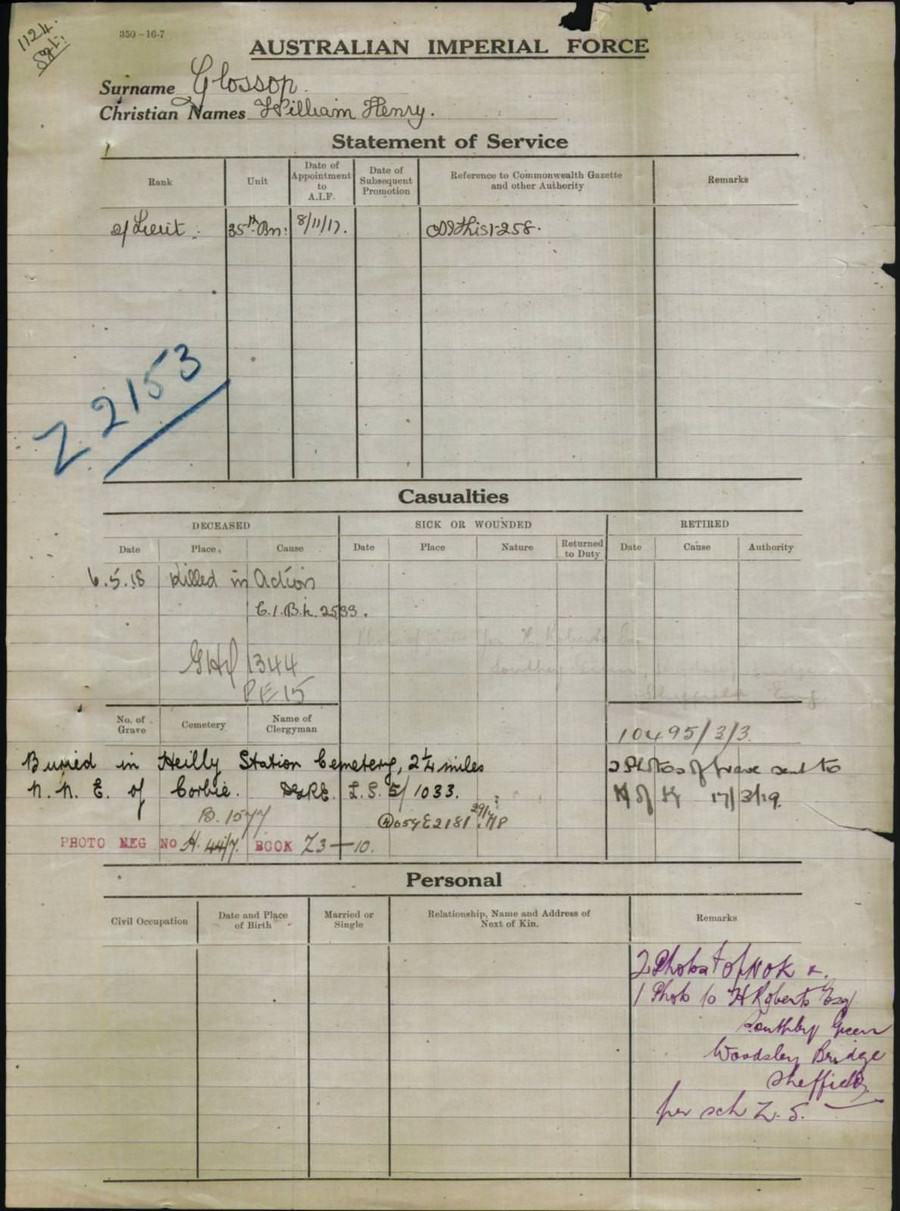 1124
Sgt.
350—16-7
AUSTRALIAN IMPERIAL FORCE
Surname Glossop.
Christian Names William Henry.
Statement of Service
Rank
Unit
Date of Appointment to A.I.F.
Date of Subsequent Promotion
Reference to Commonwealth Gazette and other Authority
Remarks
2/Lieut. 35th Bn. 8/11/17. 1258.
Z 2153
Casualties
DECEASED
SICK OR WOUNDED
RETIRED
Date Place. Cause Date Place Nature Returned to Duty Date Cause Authority
6.5.18 Killed in Action
C.I.B.L. 2533.
1344
PE 15
No. of Grave
Cemetery
Name of Clergyman
10495/3/3.
Buried in Heilly Station Cemetery, 2¼ miles
2 Photos of Grave sent to
N. N. E. of Corbie. L.S. 5/1033.
N of K 17/3/19.
B. 1577
PHOTO NEG No H. 44/7. BOOK Z3—10.
Personal
Civil Occupation
Date and Place of Birth
Married or Single
Relationship, Name and Address of Next of Kin.
Remarks
2 Photos to NOK &
1 Photo to H Roberts Esq
Green
Bridge
Sheffield
per sch Z. S.